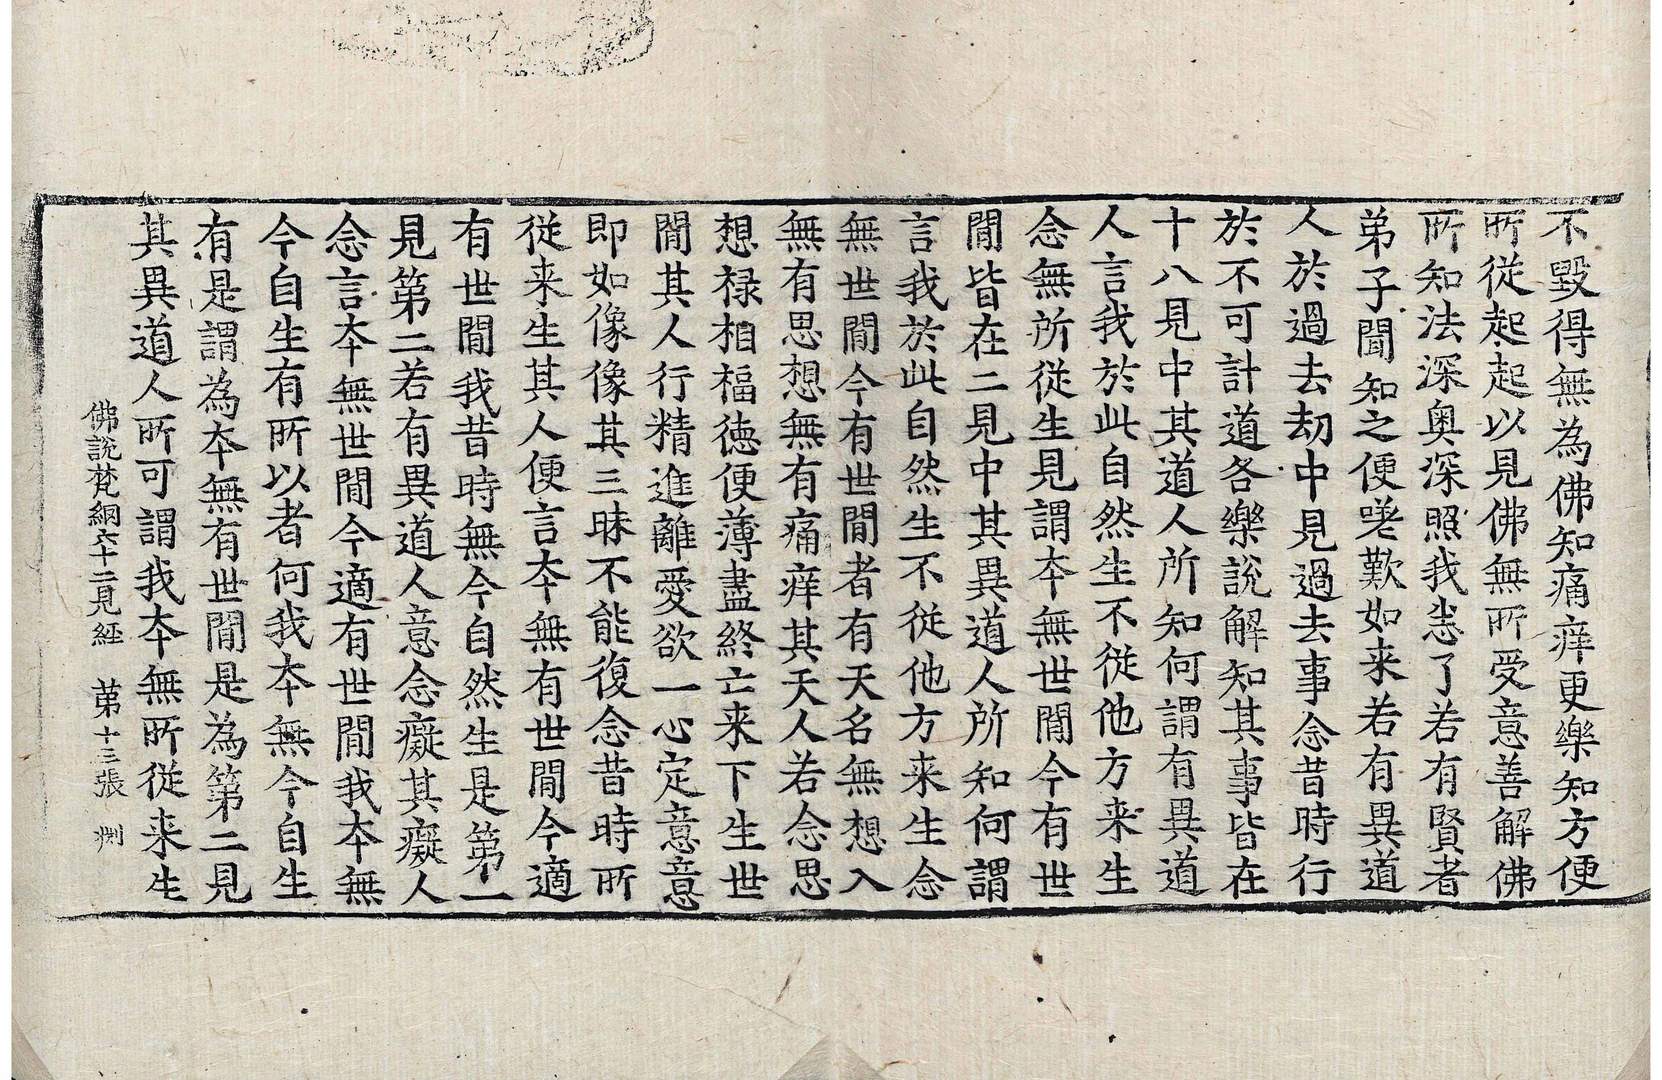 不毀得無為佛知痛痒更樂知方便
所從起起以見佛無所受意善解佛
所知法深奧深照我悉了若有賢者
弟子聞知之便嗟歎如来若有異道
人於過去劫中見過去事念昔時行
於不可計道各樂說解知其事皆在
十八見中其道人所知何謂有異道
人言我於此自然生不從他方来生
念無所從生見謂本無世間今有世
間皆在二見中其異道人所知何謂
言我於此自然生不從他方来生念
無世間今有世間者有天名無想入
無有思想無有痛痒其天人若念思
想禄相福德便薄盡終亡来下生世
間其人行精進離愛欲一心定意意
即如像像其三昧不能復念昔時所
從来生其人便言本無有世間今適
有世間我昔時無今自然生是第一
見第二若有異道人意念癡其癡人
念言本無世間今適有世間我本無
今自生有所以者何我本無今自生
有是謂為本無有世間是為第二見
其異道人所可謂我本無所從来生
佛說梵網六十二見經 第十三張